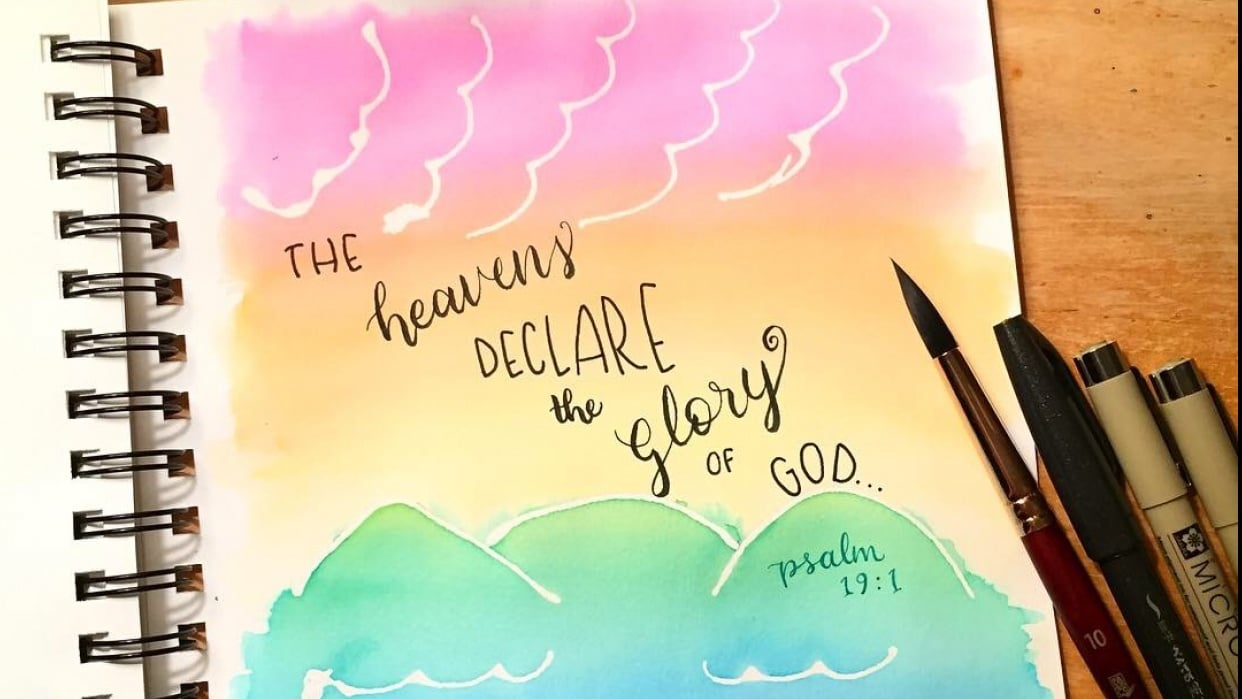 THE
heavens
DECLARE
the
glory
OF
GOD...
psalm
19:1
10
MICRO